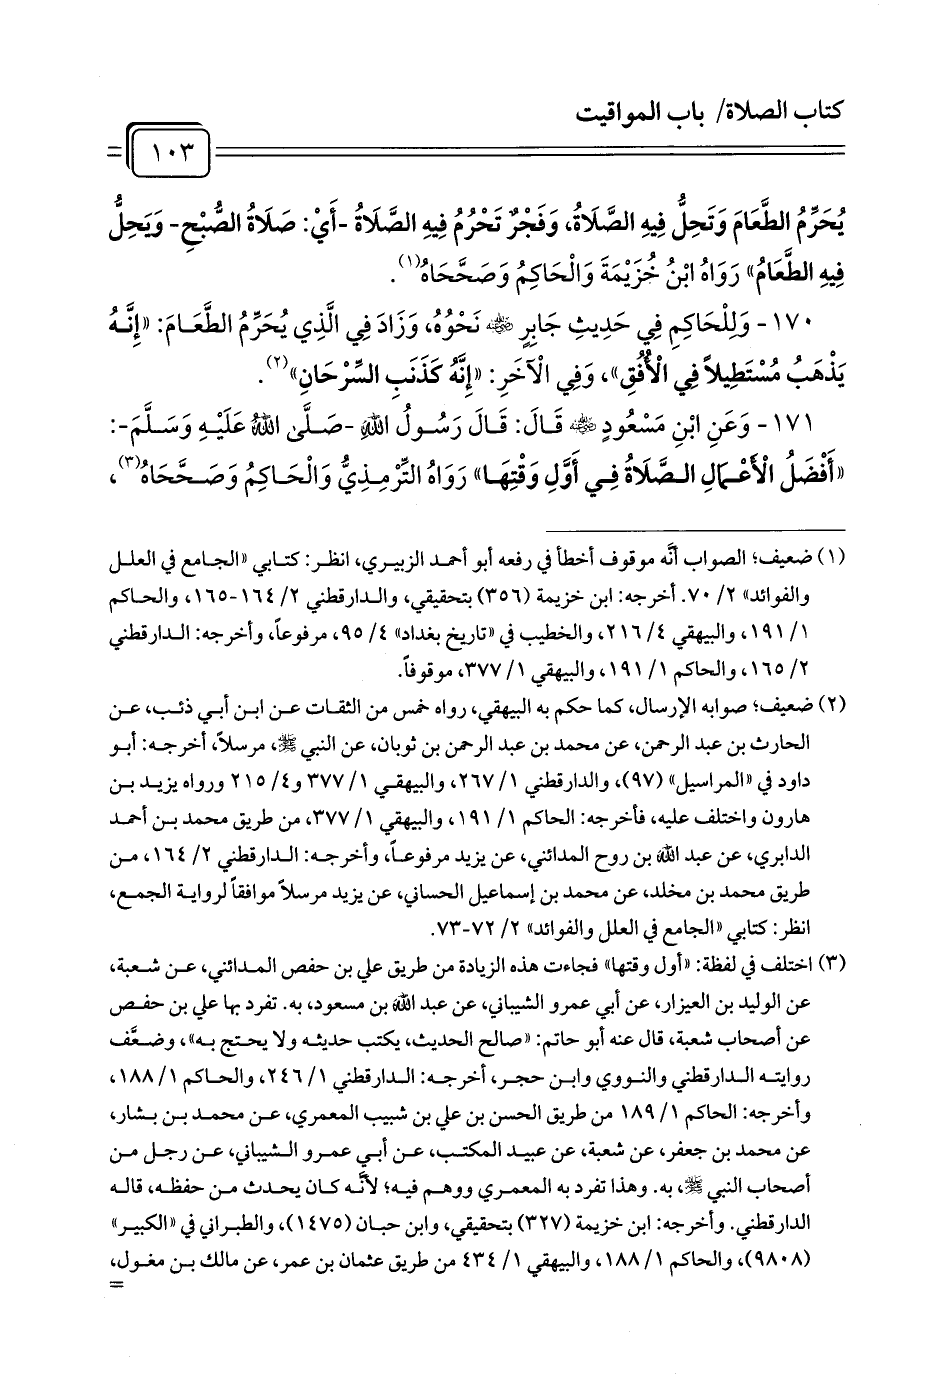 كتاب الصلاة/ باب المواقيت
١٠٣
يُحَرِّمُ الطَّعَامَ وَتَحِلُّ فِيهِ الصَّلَاةُ، وَفَجْرٌ تَحْرُمُ فِيهِ الصَّلَاةُ -أَيْ: صَلَاةُ الصُّبْحِ- وَيَحِلُّ
فِيهِ الطَّعَامُ» رَوَاهُ ابْنُ خُزَيْمَةَ وَالْحَاكِمُ وَصَحَّحَاهُ(١).
١٧٠- وَلِلْحَاكِمِ فِي حَدِيثِ جَابِرٍ ﵁ نَحْوُهُ، وَزَادَ فِي الَّذِي يُحَرِّمُ الطَّعَامَ: «إِنَّهُ
يَذْهَبُ مُسْتَطِيلاً فِي الْأُفُقِ»، وَفِي الْآخَرِ: «إِنَّهُ كَذَنَبِ السِّرْحَانِ»(٢).
١٧١- وَعَنِ ابْنِ مَسْعُودٍ ﵁ قَالَ: قَالَ رَسُولُ اللهِ -صَلَّى اللهُ عَلَيْهِ وَسَلَّمَ-:
«أَفْضَلُ الْأَعْمَالِ الصَّلَاةُ فِي أَوَّلِ وَقْتِهَا» رَوَاهُ التِّرْمِذِيُّ وَالْحَاكِمُ وَصَحَّحَاهُ(٣)،
(١) ضعيف؛ الصواب أنَّه موقوف أخطأ في رفعه أبو أحمد الزبيري، انظر: كتابي «الجامع في العلل
والفوائد» ٢/ ٧٠. أخرجه: ابن خزيمة (٣٥٦) بتحقيقي، والدارقطني ٢/ ١٦٤-١٦٥، والحاكم
١/ ١٩١، والبيهقي ٤/ ٢١٦، والخطيب في «تاريخ بغداد» ٤/ ٩٥، مرفوعاً، وأخرجه: الدارقطني
٢/ ١٦٥، والحاكم ١/ ١٩١، والبيهقي ١/ ٣٧٧، موقوفاً.
(٢) ضعيف؛ صوابه الإرسال، كما حكم به البيهقي، رواه خمس من الثقات عن ابن أبي ذئب، عن
الحارث بن عبد الرحمن، عن محمد بن عبد الرحمن بن ثوبان، عن النبي ﷺ، مرسلاً، أخرجه: أبو
داود في «المراسيل» (٩٧)، والدارقطني ١/ ٢٦٧، والبيهقي ١/ ٣٧٧ و٤/ ٢١٥ ورواه يزيد بن
هارون واختلف عليه، فأخرجه: الحاكم ١/ ١٩١، والبيهقي ١/ ٣٧٧، من طريق محمد بن أحمد
الدابري، عن عبد الله بن روح المدائني، عن يزيد مرفوعاً، وأخرجه: الدارقطني ٢/ ١٦٤، من
طريق محمد بن مخلد، عن محمد بن إسماعيل الحساني، عن يزيد مرسلاً موافقاً لرواية الجمع،
انظر: كتابي «الجامع في العلل والفوائد» ٢/ ٧٢-٧٣.
(٣) اختلف في لفظة: «أول وقتها» فجاءت هذه الزيادة من طريق علي بن حفص المدائني، عن شعبة،
عن الوليد بن العيزار، عن أبي عمرو الشيباني، عن عبد الله بن مسعود، به. تفرد بها علي بن حفص
عن أصحاب شعبة، قال عنه أبو حاتم: «صالح الحديث، يكتب حديثه ولا يحتج به»، وضعَّف
روايته الدارقطني والنووي وابن حجر، أخرجه: الدارقطني ١/ ٢٤٦، والحاكم ١/ ١٨٨،
وأخرجه: الحاكم ١/ ١٨٩ من طريق الحسن بن علي بن شبيب المعمري، عن محمد بن بشار،
عن محمد بن جعفر، عن شعبة، عن عبيد المكتب، عن أبي عمرو الشيباني، عن رجل من
أصحاب النبي ﷺ، به. وهذا تفرد به المعمري ووهم فيه؛ لأنَّه كان يحدث من حفظه، قاله
الدارقطني. وأخرجه: ابن خزيمة (٣٢٧) بتحقيقي، وابن حبان (١٤٧٥)، والطبراني في «الكبير»
(٩٨٠٨)، والحاكم ١/ ١٨٨، والبيهقي ١/ ٤٣٤ من طريق عثمان بن عمر، عن مالك بن مغول،
=